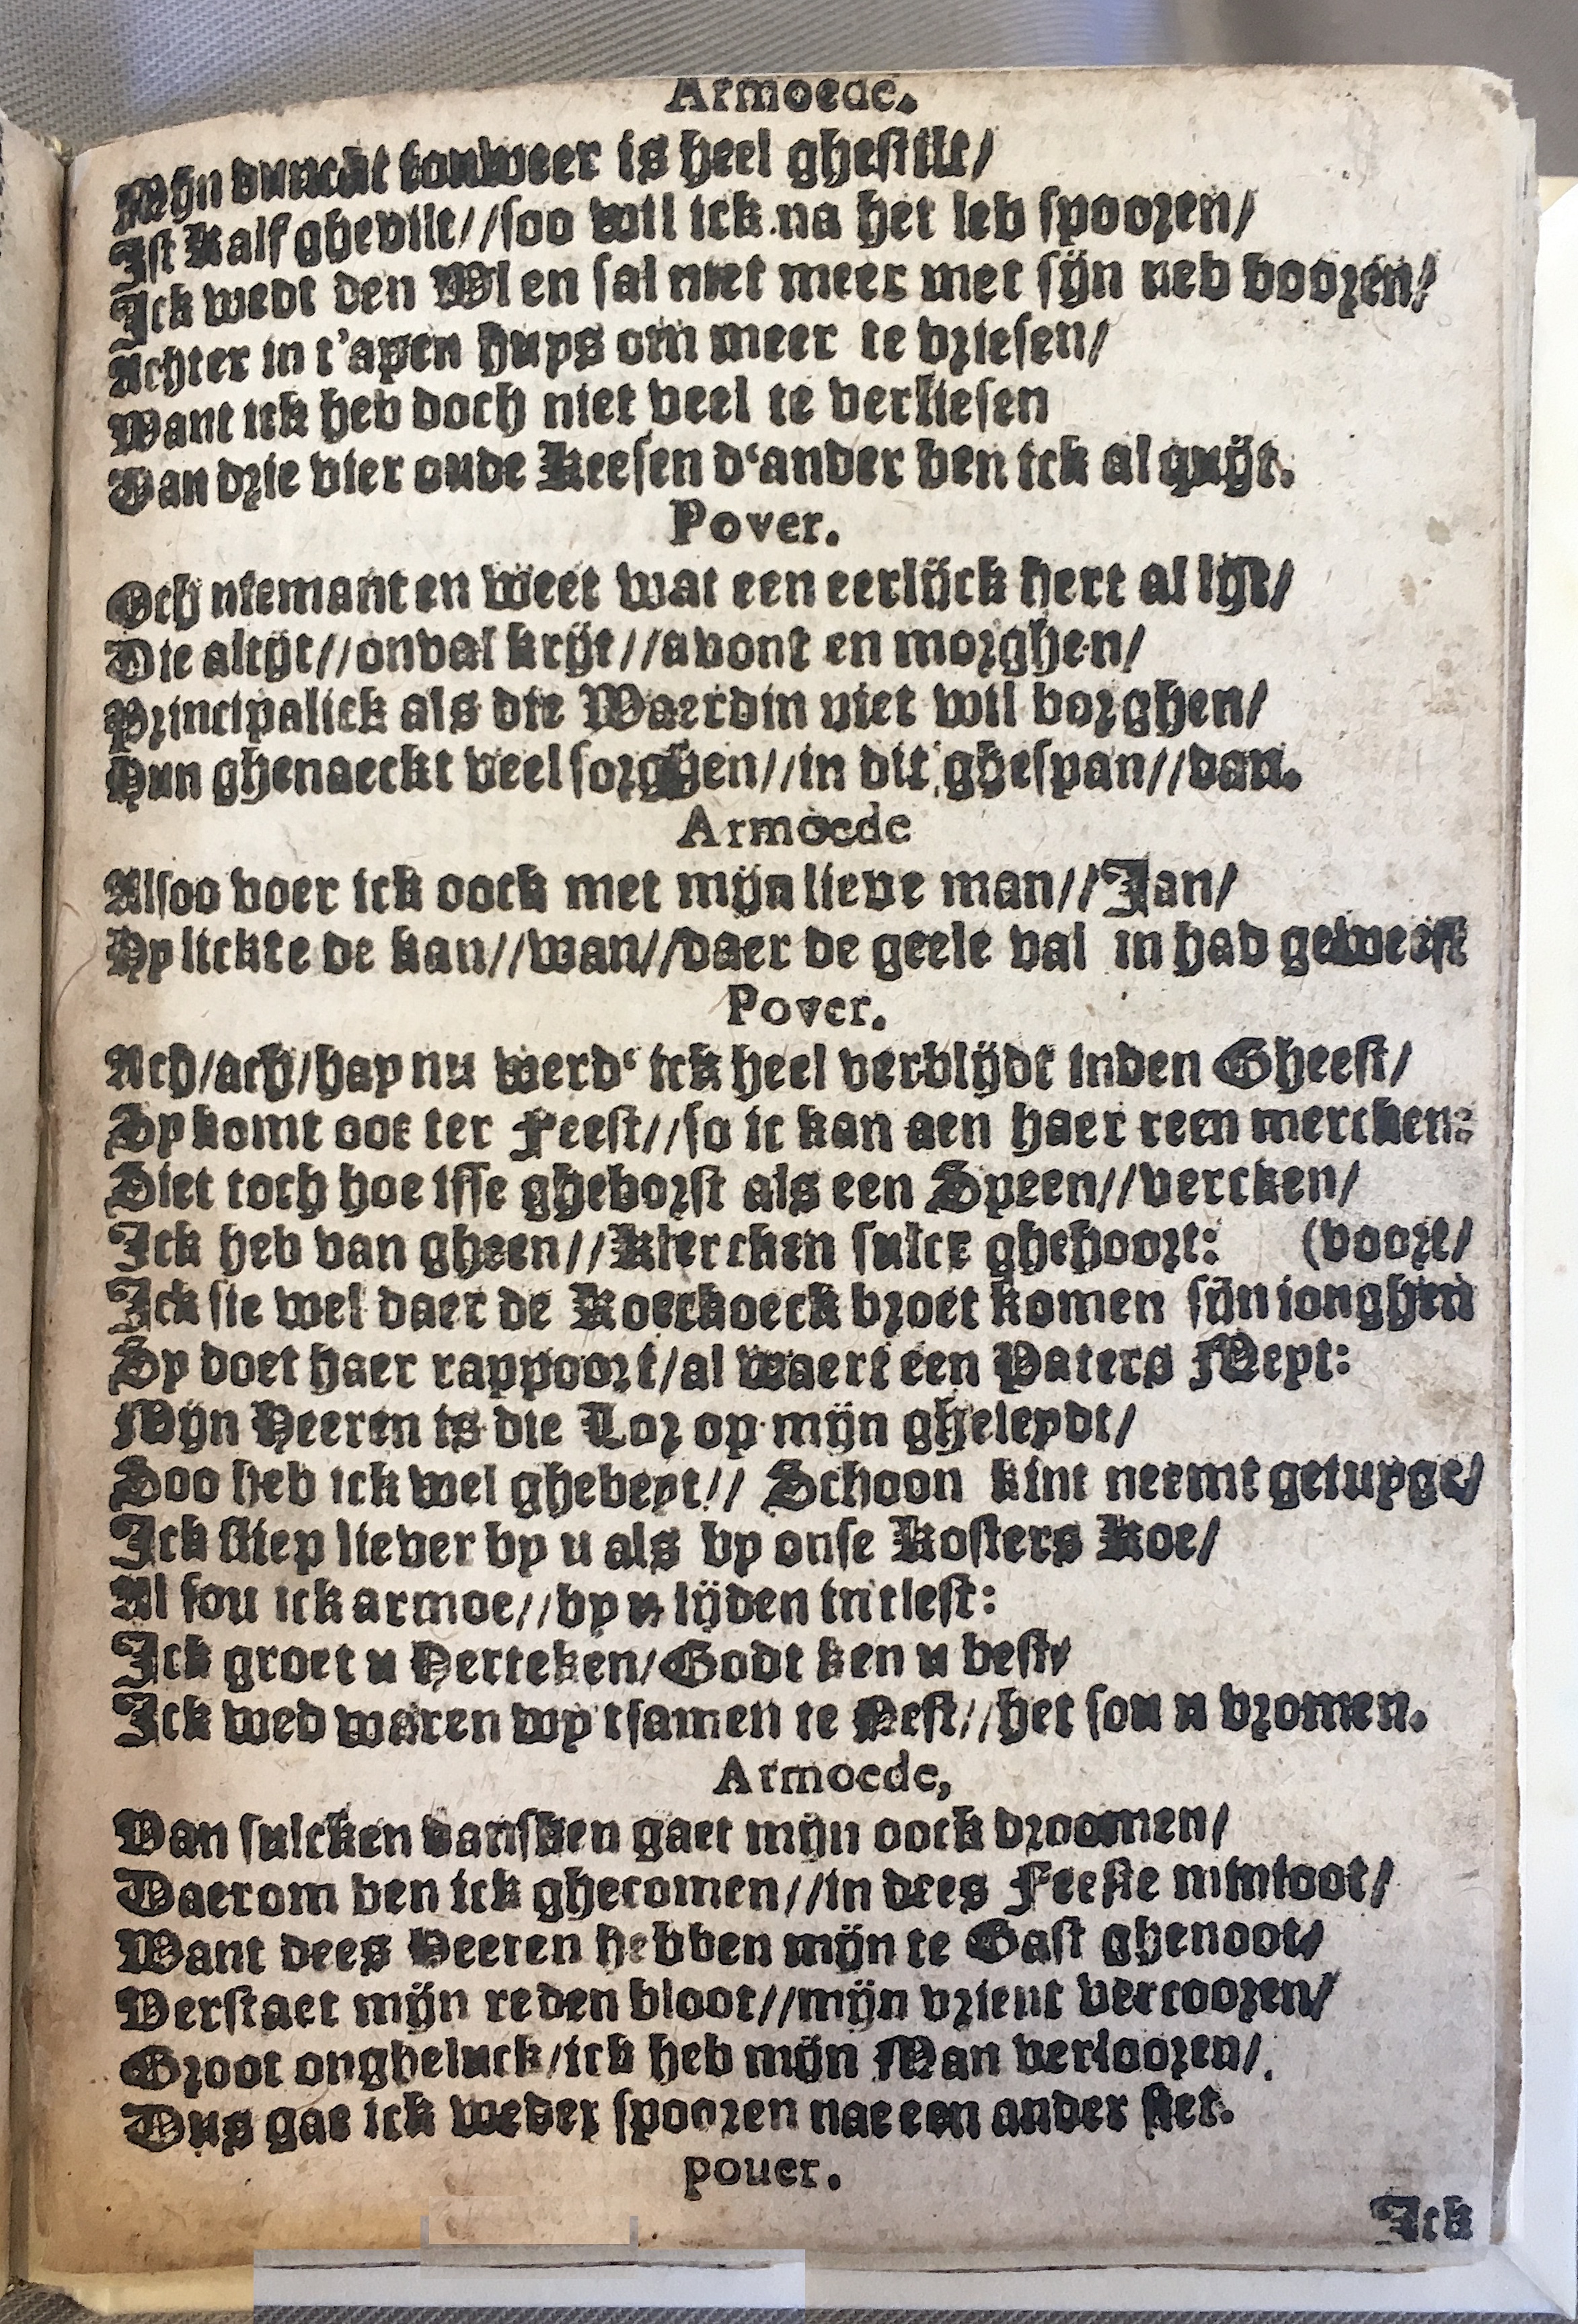 Armoede.
Mijn dunckt tonweer is heel ghestilt/
Ist Kalf ghevilt//soo wil ick na het leb spooren/
Ick wedt den Wl en sal niet meer met sijn neb booren/
Achter in t'apen huys om meer te vriesen/
Want ick heb doch niet veel te verliesen
Dan drie vier oude Keesen d'ander ben ick al quijt.
Pover.
Och niemant en weet wat een eerlijck hert al lijt/
Die altijt//onval krijt//avont en morghen/
Principalick als die Waerdin niet wil borghen/
Hun ghenaeckt veel sorghen//in dit ghespan//dan.
Armoede
Alsoo voer ick oock met mijn lieve man//Jan/
Hy lickte de kan//wan//daer de geele val in had geweest
Pover.
Ach/ach/hay nu werd' ick heel verblijdt inden Gheest/
Sy komt oot ter Feest//so ic kan aen haer reen mercken:
Siet toch hoe isse gheborst als een Speen//vercken/
Ick heb van gheen//Klercken sulcx ghehoort: (voort/
Ick sie wel daer de Koeckoeck broet komen sijn ionghen
Sy doet haer rappoort/al waert een Paters Meyt:
Mijn Heeren is die Tor op mijn gheleydt/
Soo heb ick wel ghebeyt// Schoon kint neemt getuyge/
Ick sliep liever by u als by onse Kosters Koe/
Al sou ick armoe//by u lijden int lest:
Ick groet u Herteken/Godt ken u best/
Ick wed waren wy tsamen te Nest//het sou u vromen.
Armoede,
Van sulcken dansken gaet mijn oock droomen/
Daerom ben ick ghecomen//in dees Feeste minioot/
Want dees Heeren hebben mijn te Gast ghenoot/
Verstaet mijn reden bloot//mijn vrient vercooren/
Groot ongheluck/ick heb mijn Man verlooren/
Dus gae ick weder spooren nae een ander siet.
pouer.
Ick